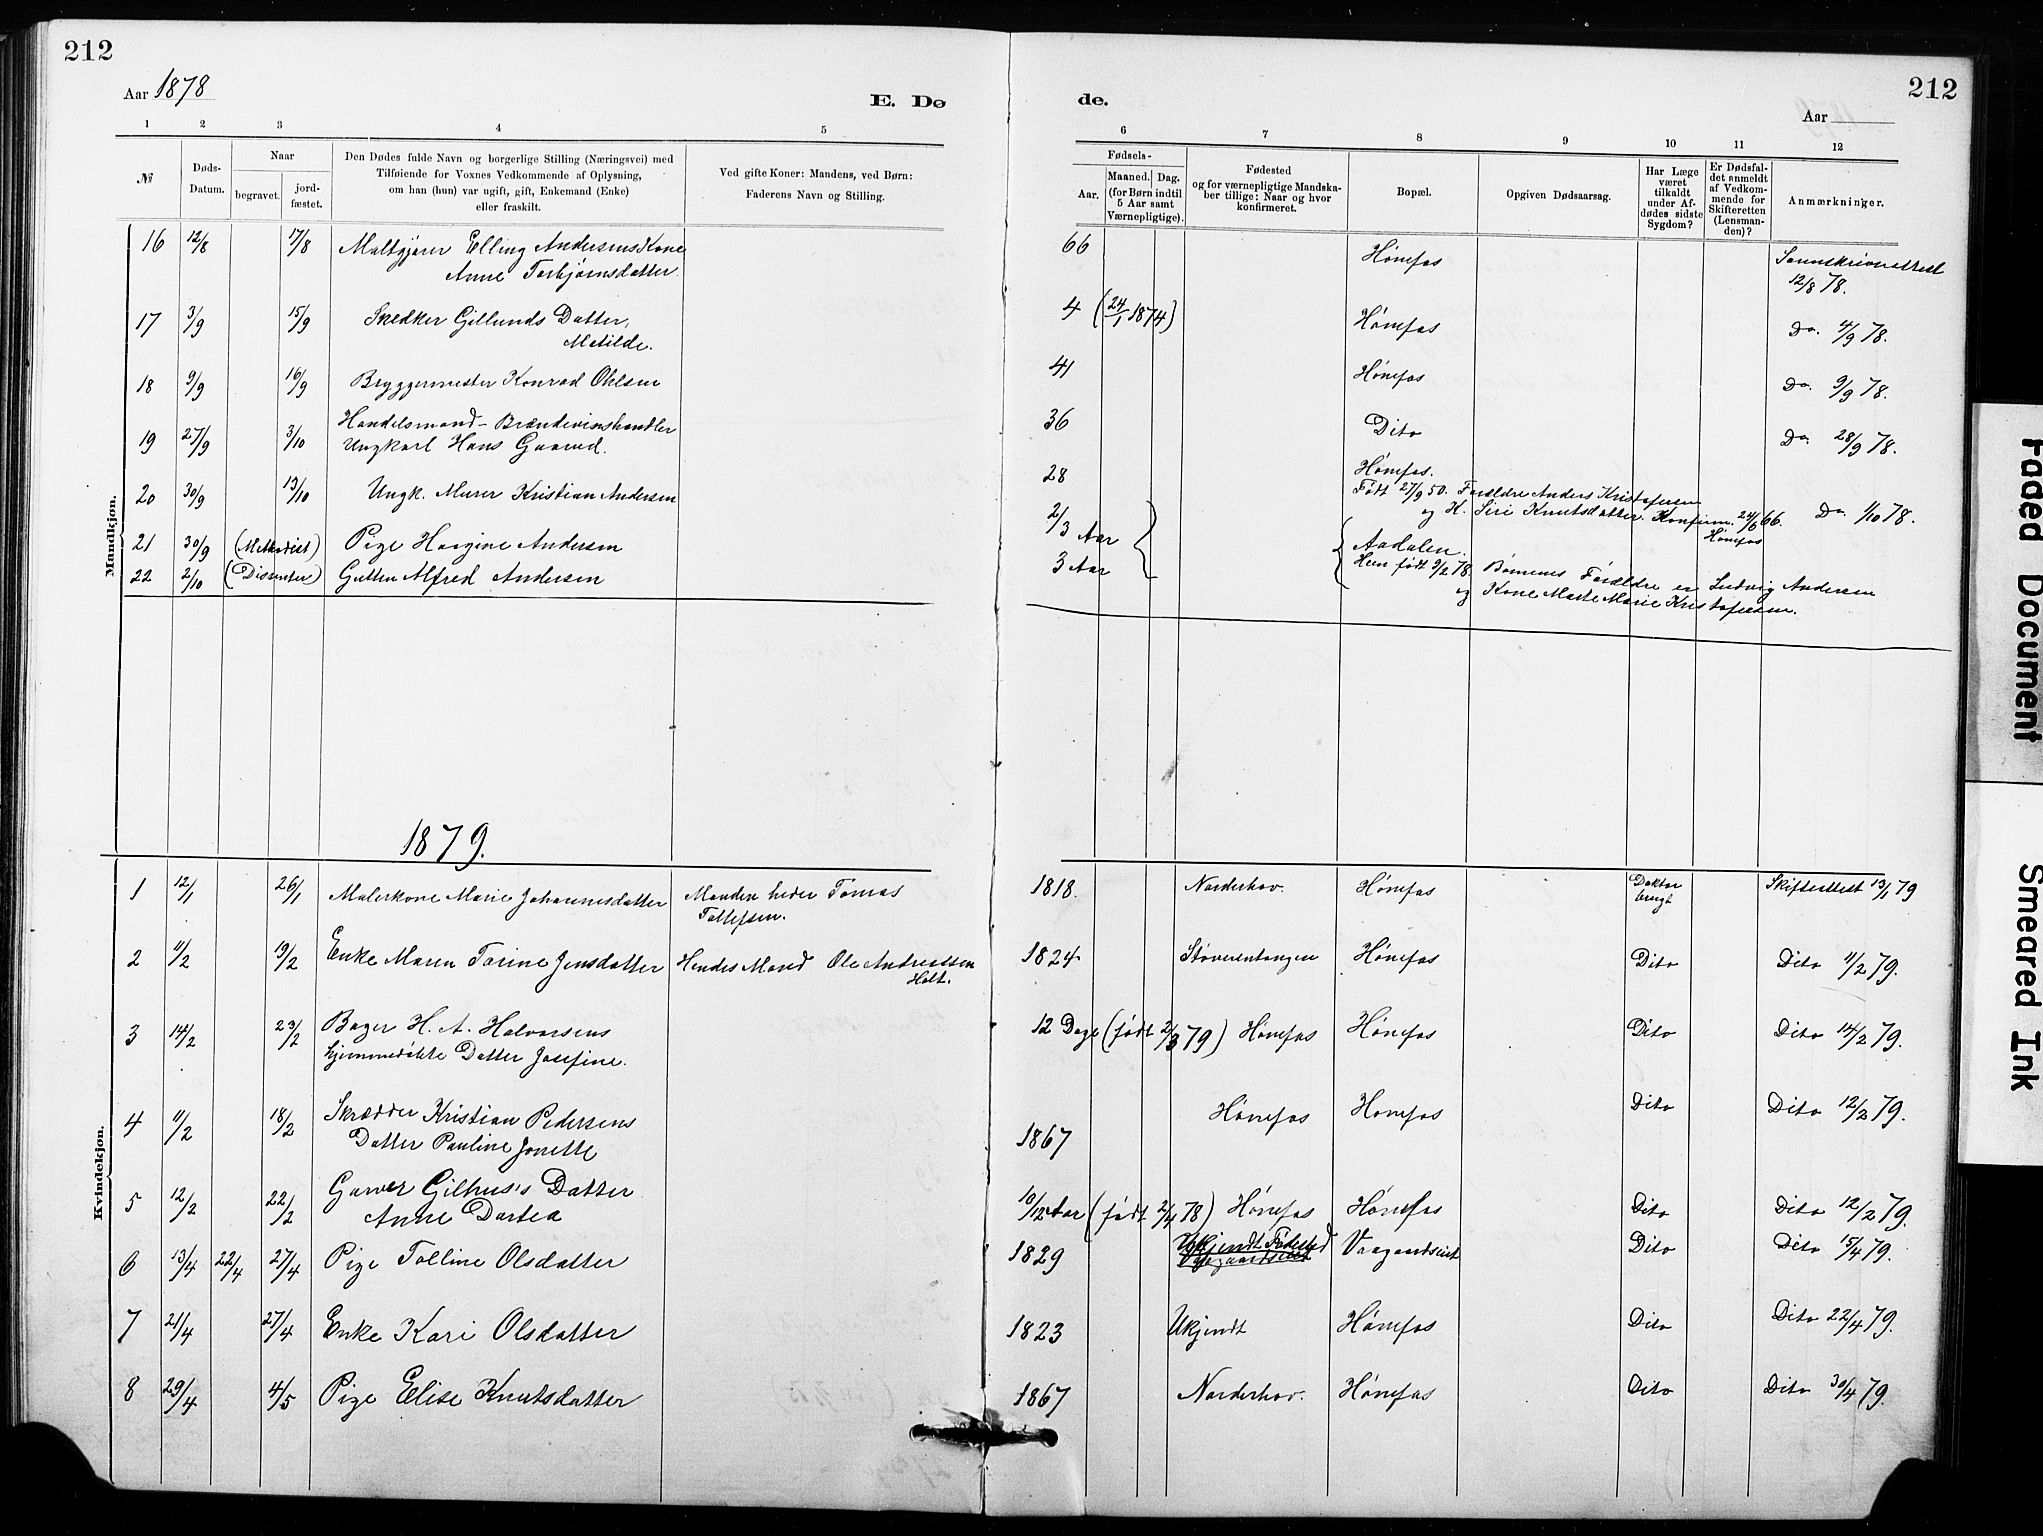 212
212
Aar 1878
E. Dø
de.
Aar
1 2 3 4 5
6 7 8 9 10 11 12
№
Døds-
Datum.
Naar
begravet.
jord-
fæstet.
Den Dødes fulde Navn og borgerlige Stilling (Næringsvei) med
Tilføiende for Voxnes Vedkommende af Oplysning,
om han (hun) var ugift, gift, Enkemand (Enke)
eller fraskilt.
Ved gifte Koner: Mandens, ved Børn:
Faderens Navn og Stilling.
Fødsels-
Aar.
Maaned. Dag.
(for Børn indtil
5 Aar samt
Værnepligtige).
Fødested
og for værnepligtige Mandska-
ber tillige: Naar og hvor
konfirmeret.
Bopæl.
Opgiven Dødsaarsag.
Har Læge
været
tilkaldt
under Af-
dødes sidste
Sygdom?
Er Dødsfal-
det anmeldt
af Vedkom-
mende for
Skifteretten
(Lensman-
den)?
Anmærkninger.
Mandkjøn.
16 12/8 17/8 Maltgjører Elling Andersens Kone 66 Hønefos
Anne Torbjørnsdatter 12/8 78.
17 3/9 15/9 Skedker Gillunds Datter, 4 (24/1 1874) Hønefos Do. 4/9 78.
Matilde.
18 9/9 16/9 Bryggermester Konrad Ohlsen 41 Hønefos Do. 9/9 78.
Handelsmand - Brændevinshandler
19 27/9 3/10 Ungkarl Hans Gaarud. 36 Dito Do. 28/9 78.
20 30/9 13/10 Ungk. Murer Kristian Andersen 28 Hønefos.
Født 27/9 50. Forældre Anders Kristofersen
og K. Siri Knutsdatter. Konfirm. 24/6 66. Do. 1/10 78.
Hønefos
21 30/9 (Methodist) Pige Haagine Andersen 2/3 Aar Aadalen.
22 2/10 (Dissenter) Gutten Alfred Andersen 3 Aar Hun født 9/2 78. Børnenes Forældre er Ludvig Andersen
og Kone Marte Marie Kristofersen.
1879.
Kvindekjøn.
1 12/1 26/1 Malerkone Marie Johannesdatter Manden heder Tomas 1818. Norderhov. Hønefos Doktor Skifteattest 13/1 79
Tollefsen. brugt
2 11/2 19/2 Enke Maren Torine Jensdatter Hendes Mand Ole Andreassen 1824 Støverentangen Hønefos Dito Dito 11/2 79.
Holt.
3 14/2 23/2 Bager H. A. Halvorsens 12 Dage (født 2/3 79) Hønefos Hønefos Dito Dito 14/2 79.
hjemmedøbte Datter Josefine.
4 11/2 18/2 Skrædder Kristian Pedersens 1867 Hønefos Hønefos Dito Dito 12/2 79.
Datter Pauline Jonette
5 12/2 22/2 Garver Gilhus's Datter 10/12 Aar (født 2/4 78) Hønefos Hønefos Dito Dito 12/2 79.
Anne Dortea
6 13/4 22/4 27/4 Pige Tolline Olsdatter 1829 Ukjendt Fødested Vaagaardseiet Dito Dito 15/4 79.
Vaagaardseiet
7 21/4 27/4 Enke Kari Olsdatter 1823 Ukjendt Hønefos Dito Dito 22/4 79.
8 29/4 4/5 Pige Elise Knutsdatter 1867 Norderhov. Hønefos Dito Dito 30/4 79.
Faded Document
Smeared Ink